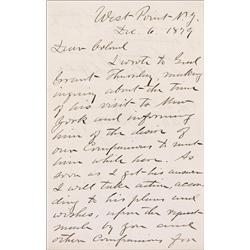 West Point N.Y.
Dec. 6. 1879
Dear Colonel
I wrote to Genl
Grant Thursday making
inquiry about the time
of his visit to New
York and informing
him of the desire of
our Companions to meet
him while here. As
soon as I get his answer
I will take action accor-
ding to his plans and
wishes, upon the request
made by you and
other Companions for